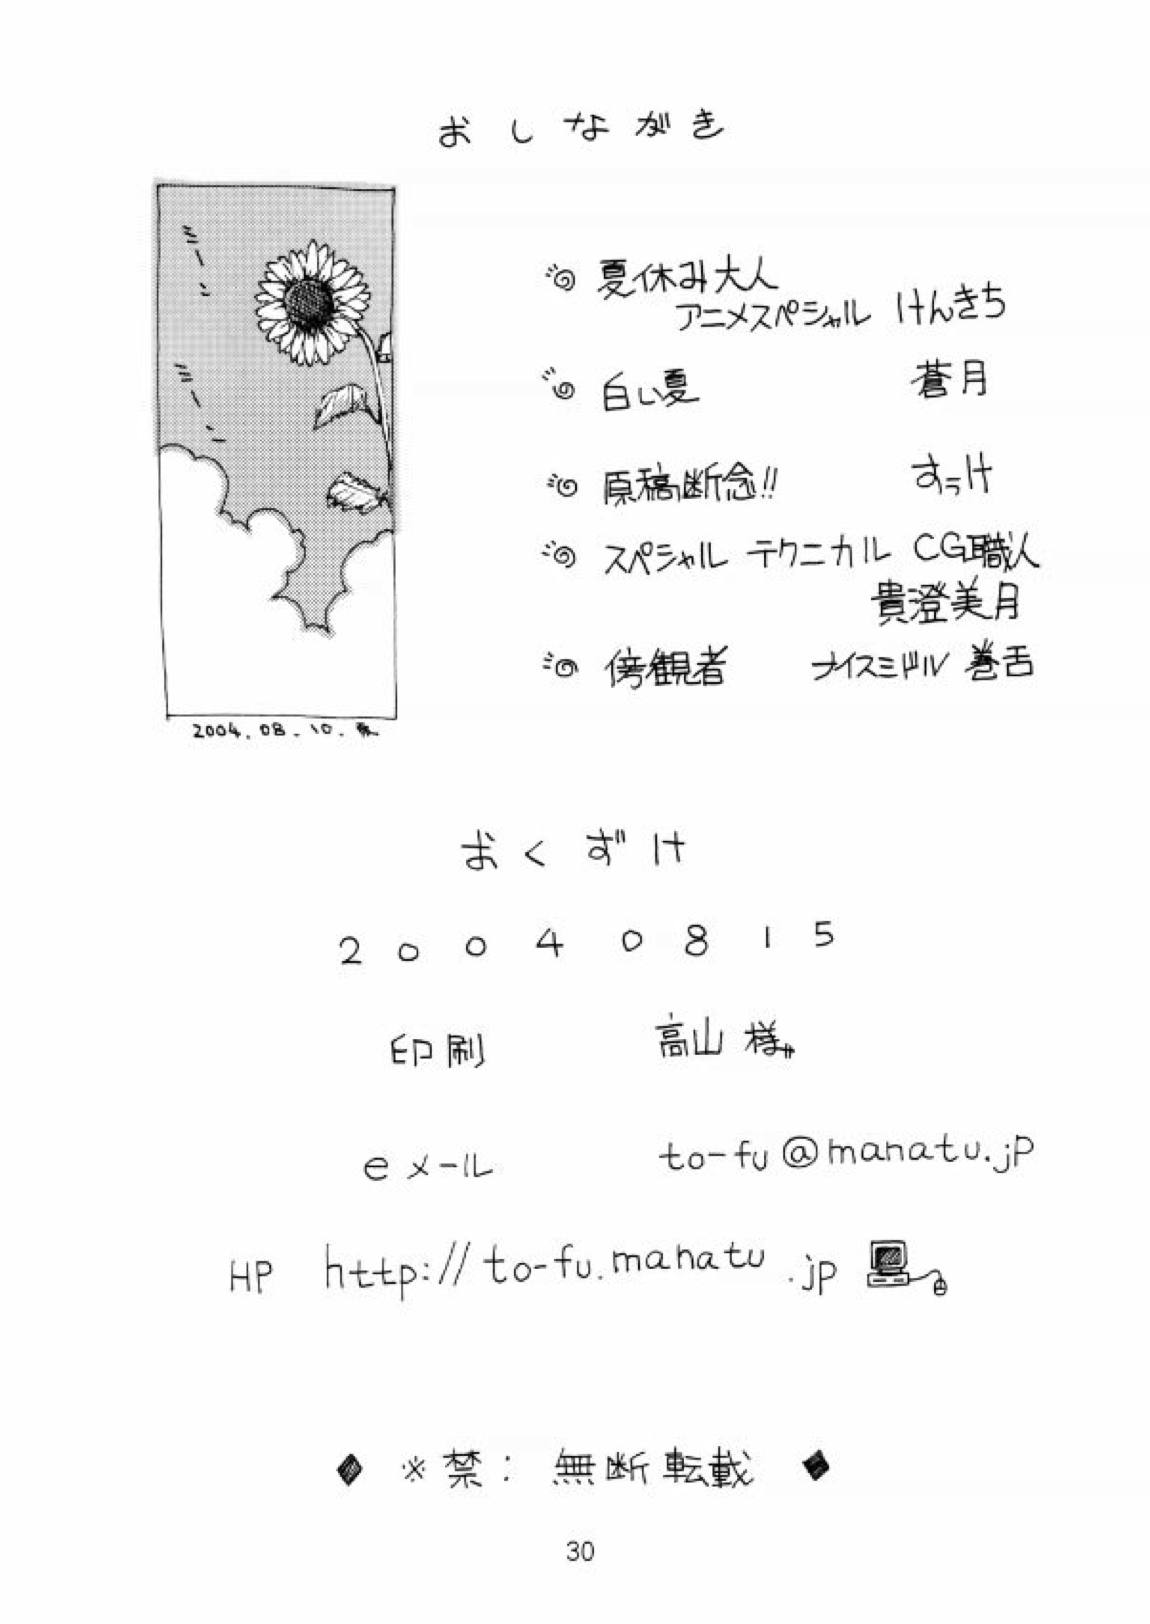 おしながき
ミーン
ミーン
夏休み大人
アニメスペシャル けんきち
白い夏 蒼月
原稿断念!! すぅけ
スペシャル テクニカル CG職人
貴澄美月
傍観者 ナイスミドル 巻舌
2004.08.10.
おくずけ
20040815
印刷 高山様
eメール to-fu@manatu.jp
HP http://to-fu.manatu.jp
◆ ※禁: 無断転載 ◆
30